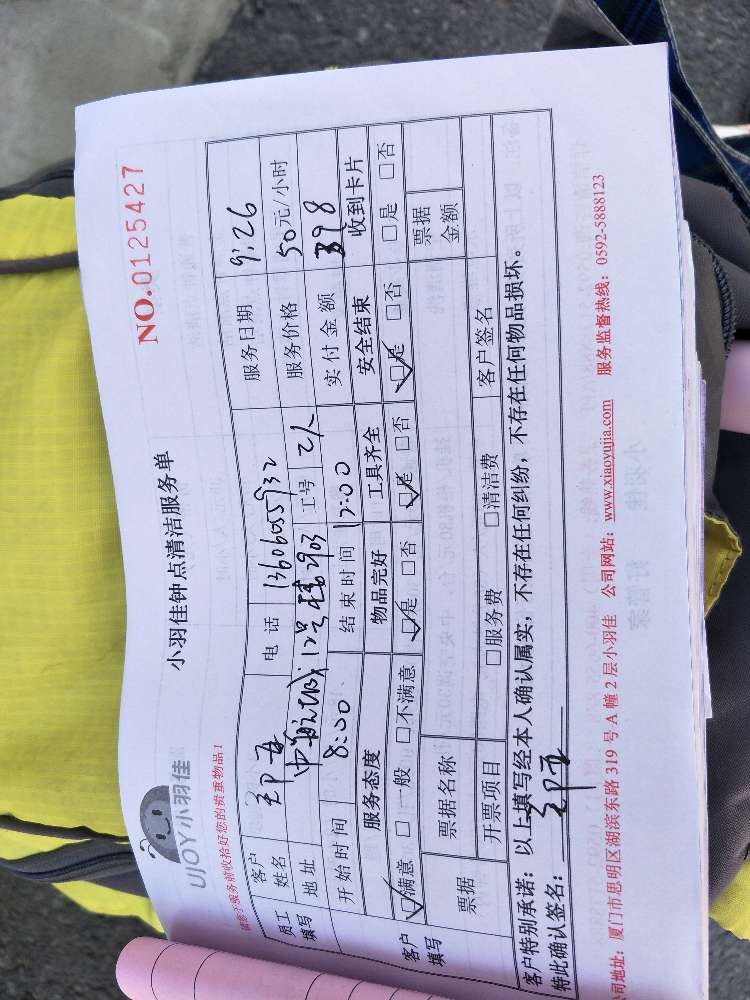 UJOY小羽佳
小羽佳钟点清洁服务单
NO.0125427
请您在服务前收拾好您的贵重物品！
员工填写
客户姓名 电话 13606055932 服务日期 9.26
地址 中航城 12号楼2903 工号 2人 服务价格 50元/小时
开始时间 8:00 结束时间 12:00 实付金额 398
客户填写
服务态度 物品完好 工具齐全 安全结束 收到卡片
☑满意 □一般 □不满意 ☑是 □否 ☑是 □否 ☑是 □否 □是 □否
票据 票据名称 票据金额
开票项目 □服务费 □清洁费 客户签名
客户特别承诺：以上填写经本人确认属实，不存在任何纠纷，不存在任何物品损坏。
特此确认签名：
司地址：厦门市思明区湖滨东路 319 号 A 幢 2 层小羽佳 公司网站：www.xiaoyujia.com 服务监督热线：0592-5888123